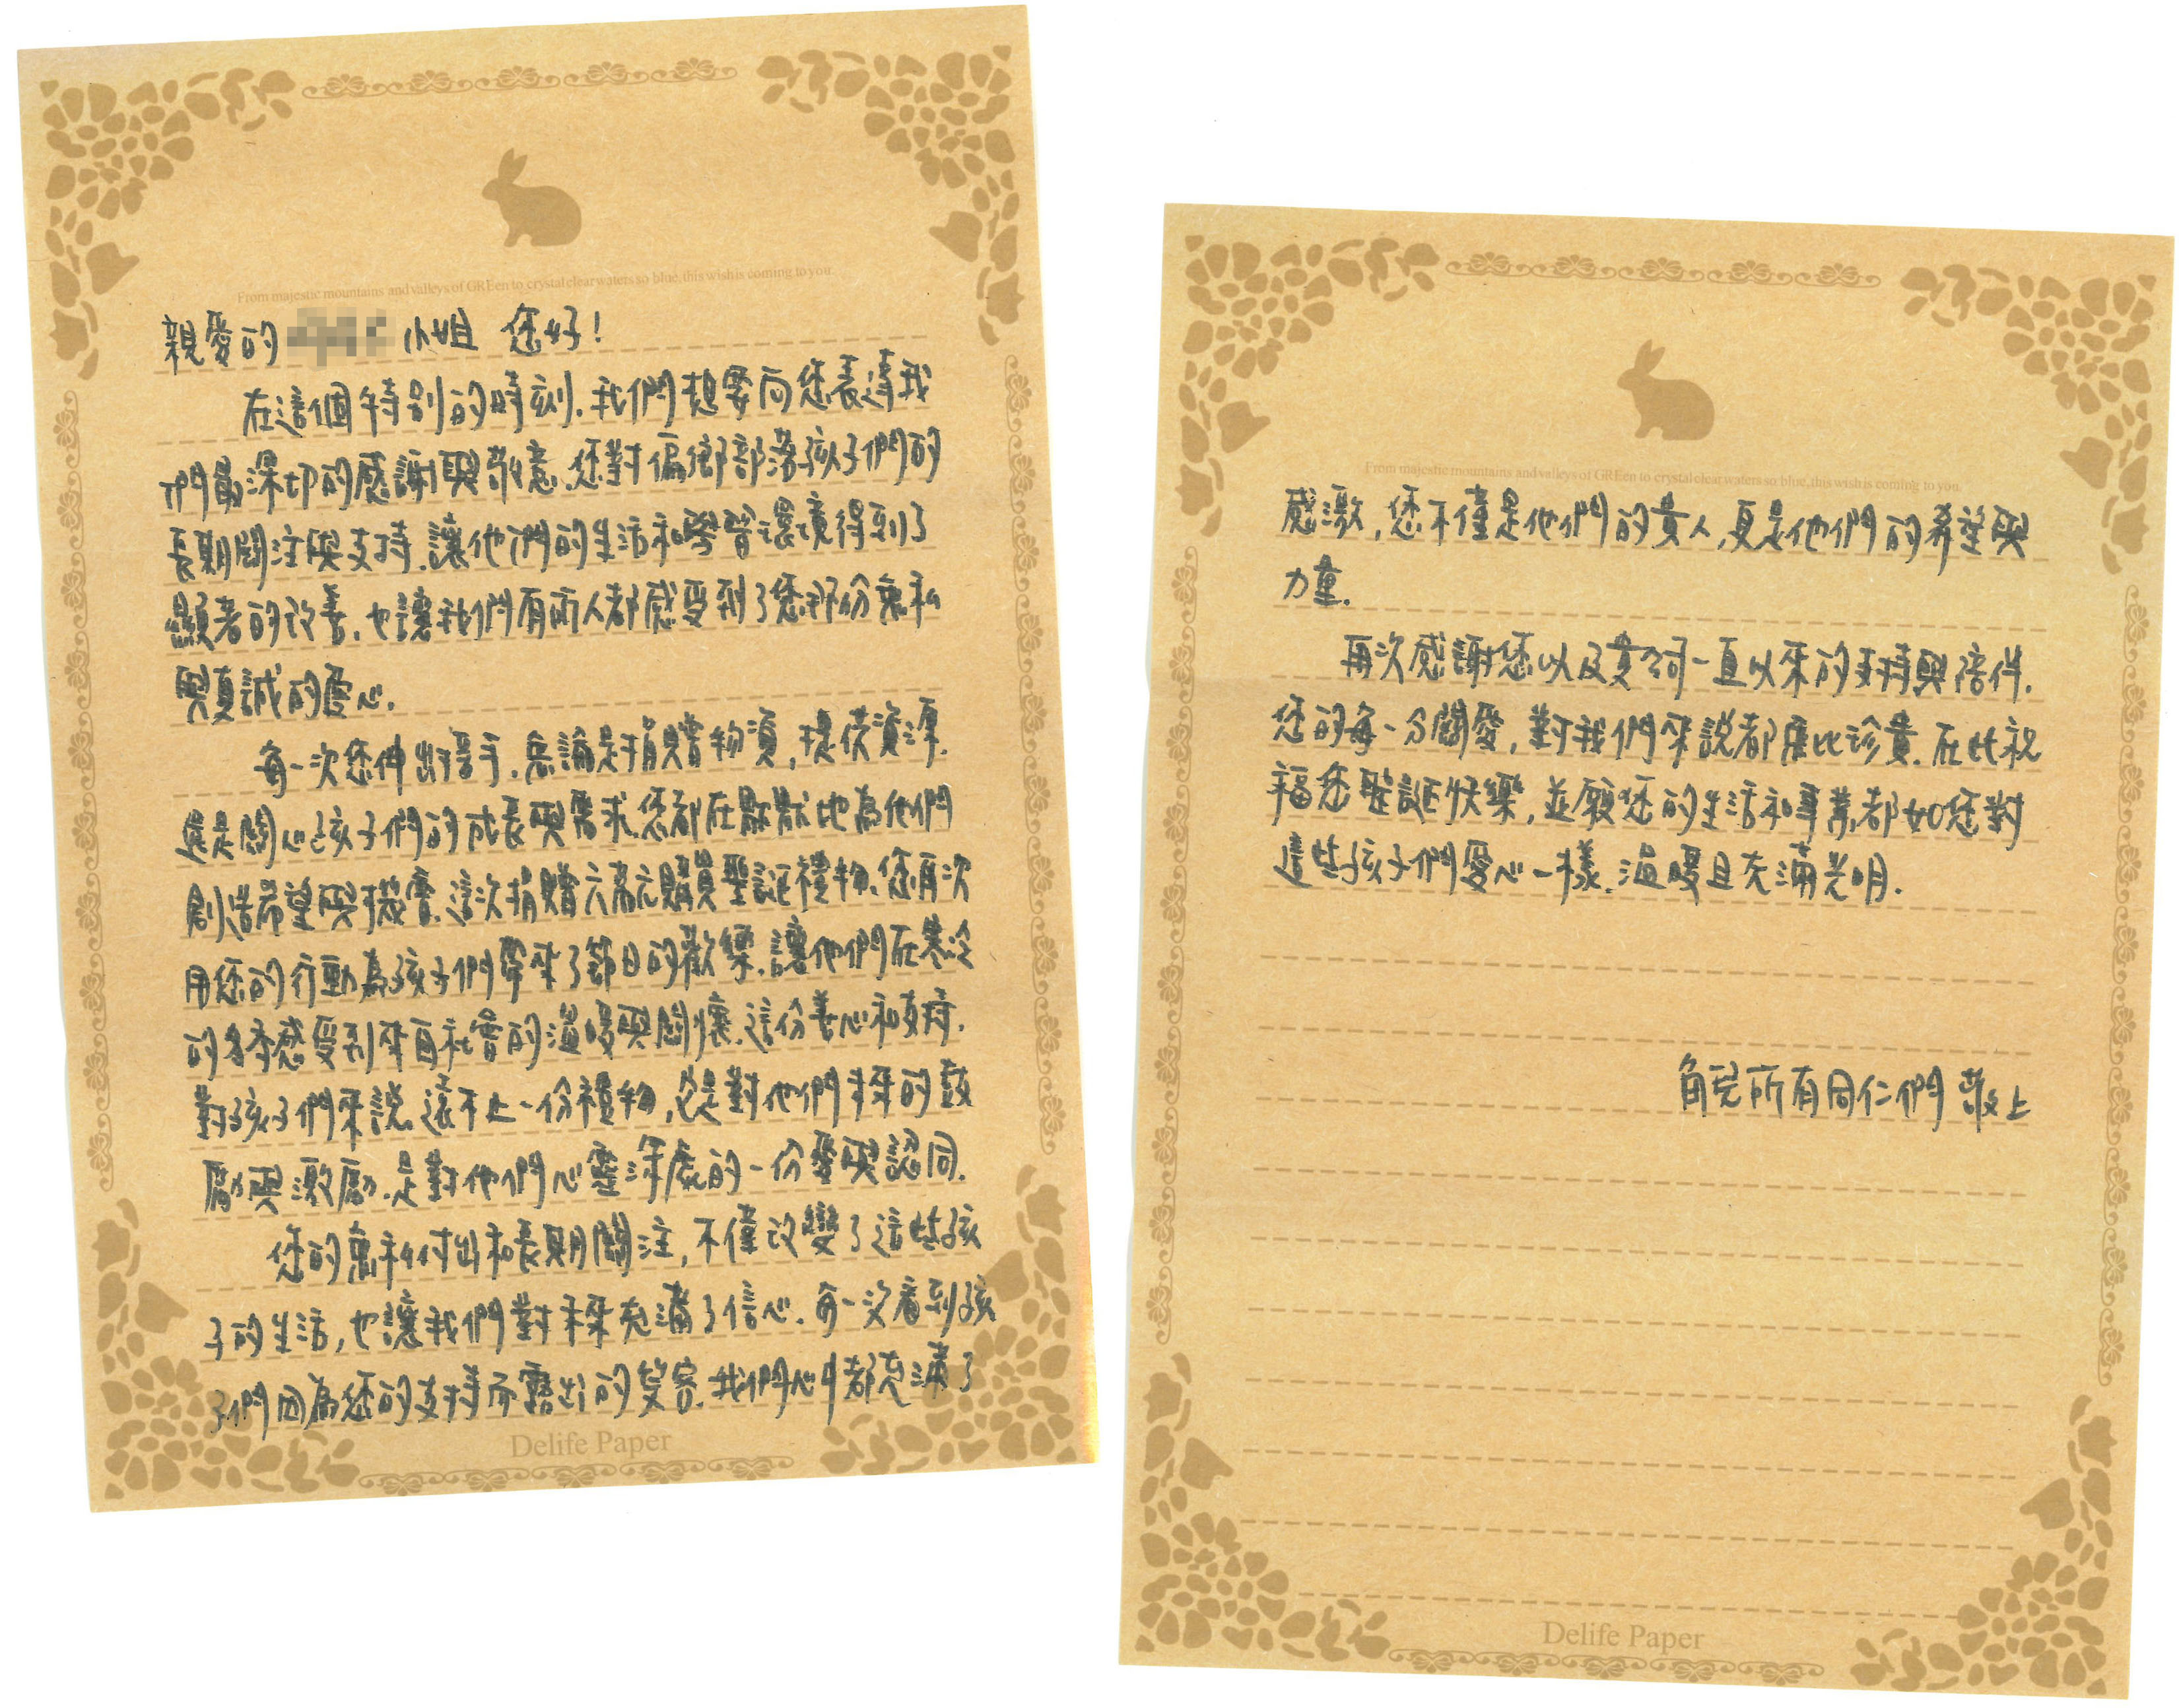 From majestic mountains and valleys of GREen to crystal clear waters so blue, this wish is coming to you.
親愛的 小姐 您好!
在這個特別的時刻.我們想要向您表達我
們最深切的感謝與敬意.您對偏鄉部落孩子們的
長期關注與支持.讓他們的生活和學習環境得到了
顯著的改善.也讓我們所有人都感受到了您那份無私
與真誠的愛心.
每一次您伸出援手.無論是捐贈物資,提供資源.
還是關心孩子們的成長與需求.您都在默默地為他們
創造希望與機會.這次捐贈六萬元購買聖誕禮物.您再次
用您的行動為孩子們帶來了節日的歡樂.讓他們在寒冷
的冬季感受到來自社會的溫暖與關懷.這份善心和支持.
對孩子們來說.遠不止一份禮物,也是對他們未來的鼓
勵與激勵.是對他們心靈深處的一份愛與認同.
您的無私付出和長期關注,不僅改變了這些孩
子的生活,也讓我們對未來充滿了信心.每一次看到孩
子們因為您的支持而露出的笑容.我們心中都充滿了
Delife Paper
From majestic mountains and valleys of GREen to crystal clear waters so blue, this wish is coming to you.
感激,您不僅是他們的貴人,更是他們的希望與
力量.
再次感謝您以及貴公司一直以來的支持與陪伴.
您的每一分關愛,對我們來說都無比珍貴.在此祝
福您聖誕快樂,並願您的生活和事業,都如您對
這些孩子們愛心一樣.溫暖且充滿光明.
所有同仁們 敬上
Delife Paper